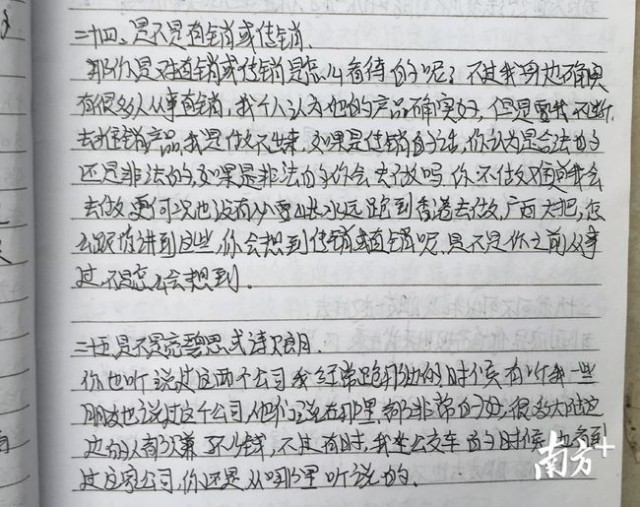 二十四、是不是直销或传销.
那你是对直销或传销是怎么看待的呢？不过我身边确实
有很多人从事直销，我个人认为他的产品确实好，但是要我不断
去推销产品，我是做不出来，如果是传销的话，你认为是合法的
还是非法的，如果是非法的你会去做吗，你不做难道我会
去做，更何况也没有必要山长水远跑到香港去做，广西大把，怎
么跟你讲到这些，你会想到传销或直销呢，是不是你之前从事
过，不是怎么会想到.
二十五、是不是完碧思或诗贝朗.
你也听说过这两个公司，我经常跑那边的时候，有听我一些
朋友也说过这个公司，他们说在那里都非常的好，很多大陆这
边的人都以赚了不少钱，不过有时，我坐公交车的时候也看到
过这家公司，你还是从哪里听说的.
南方+